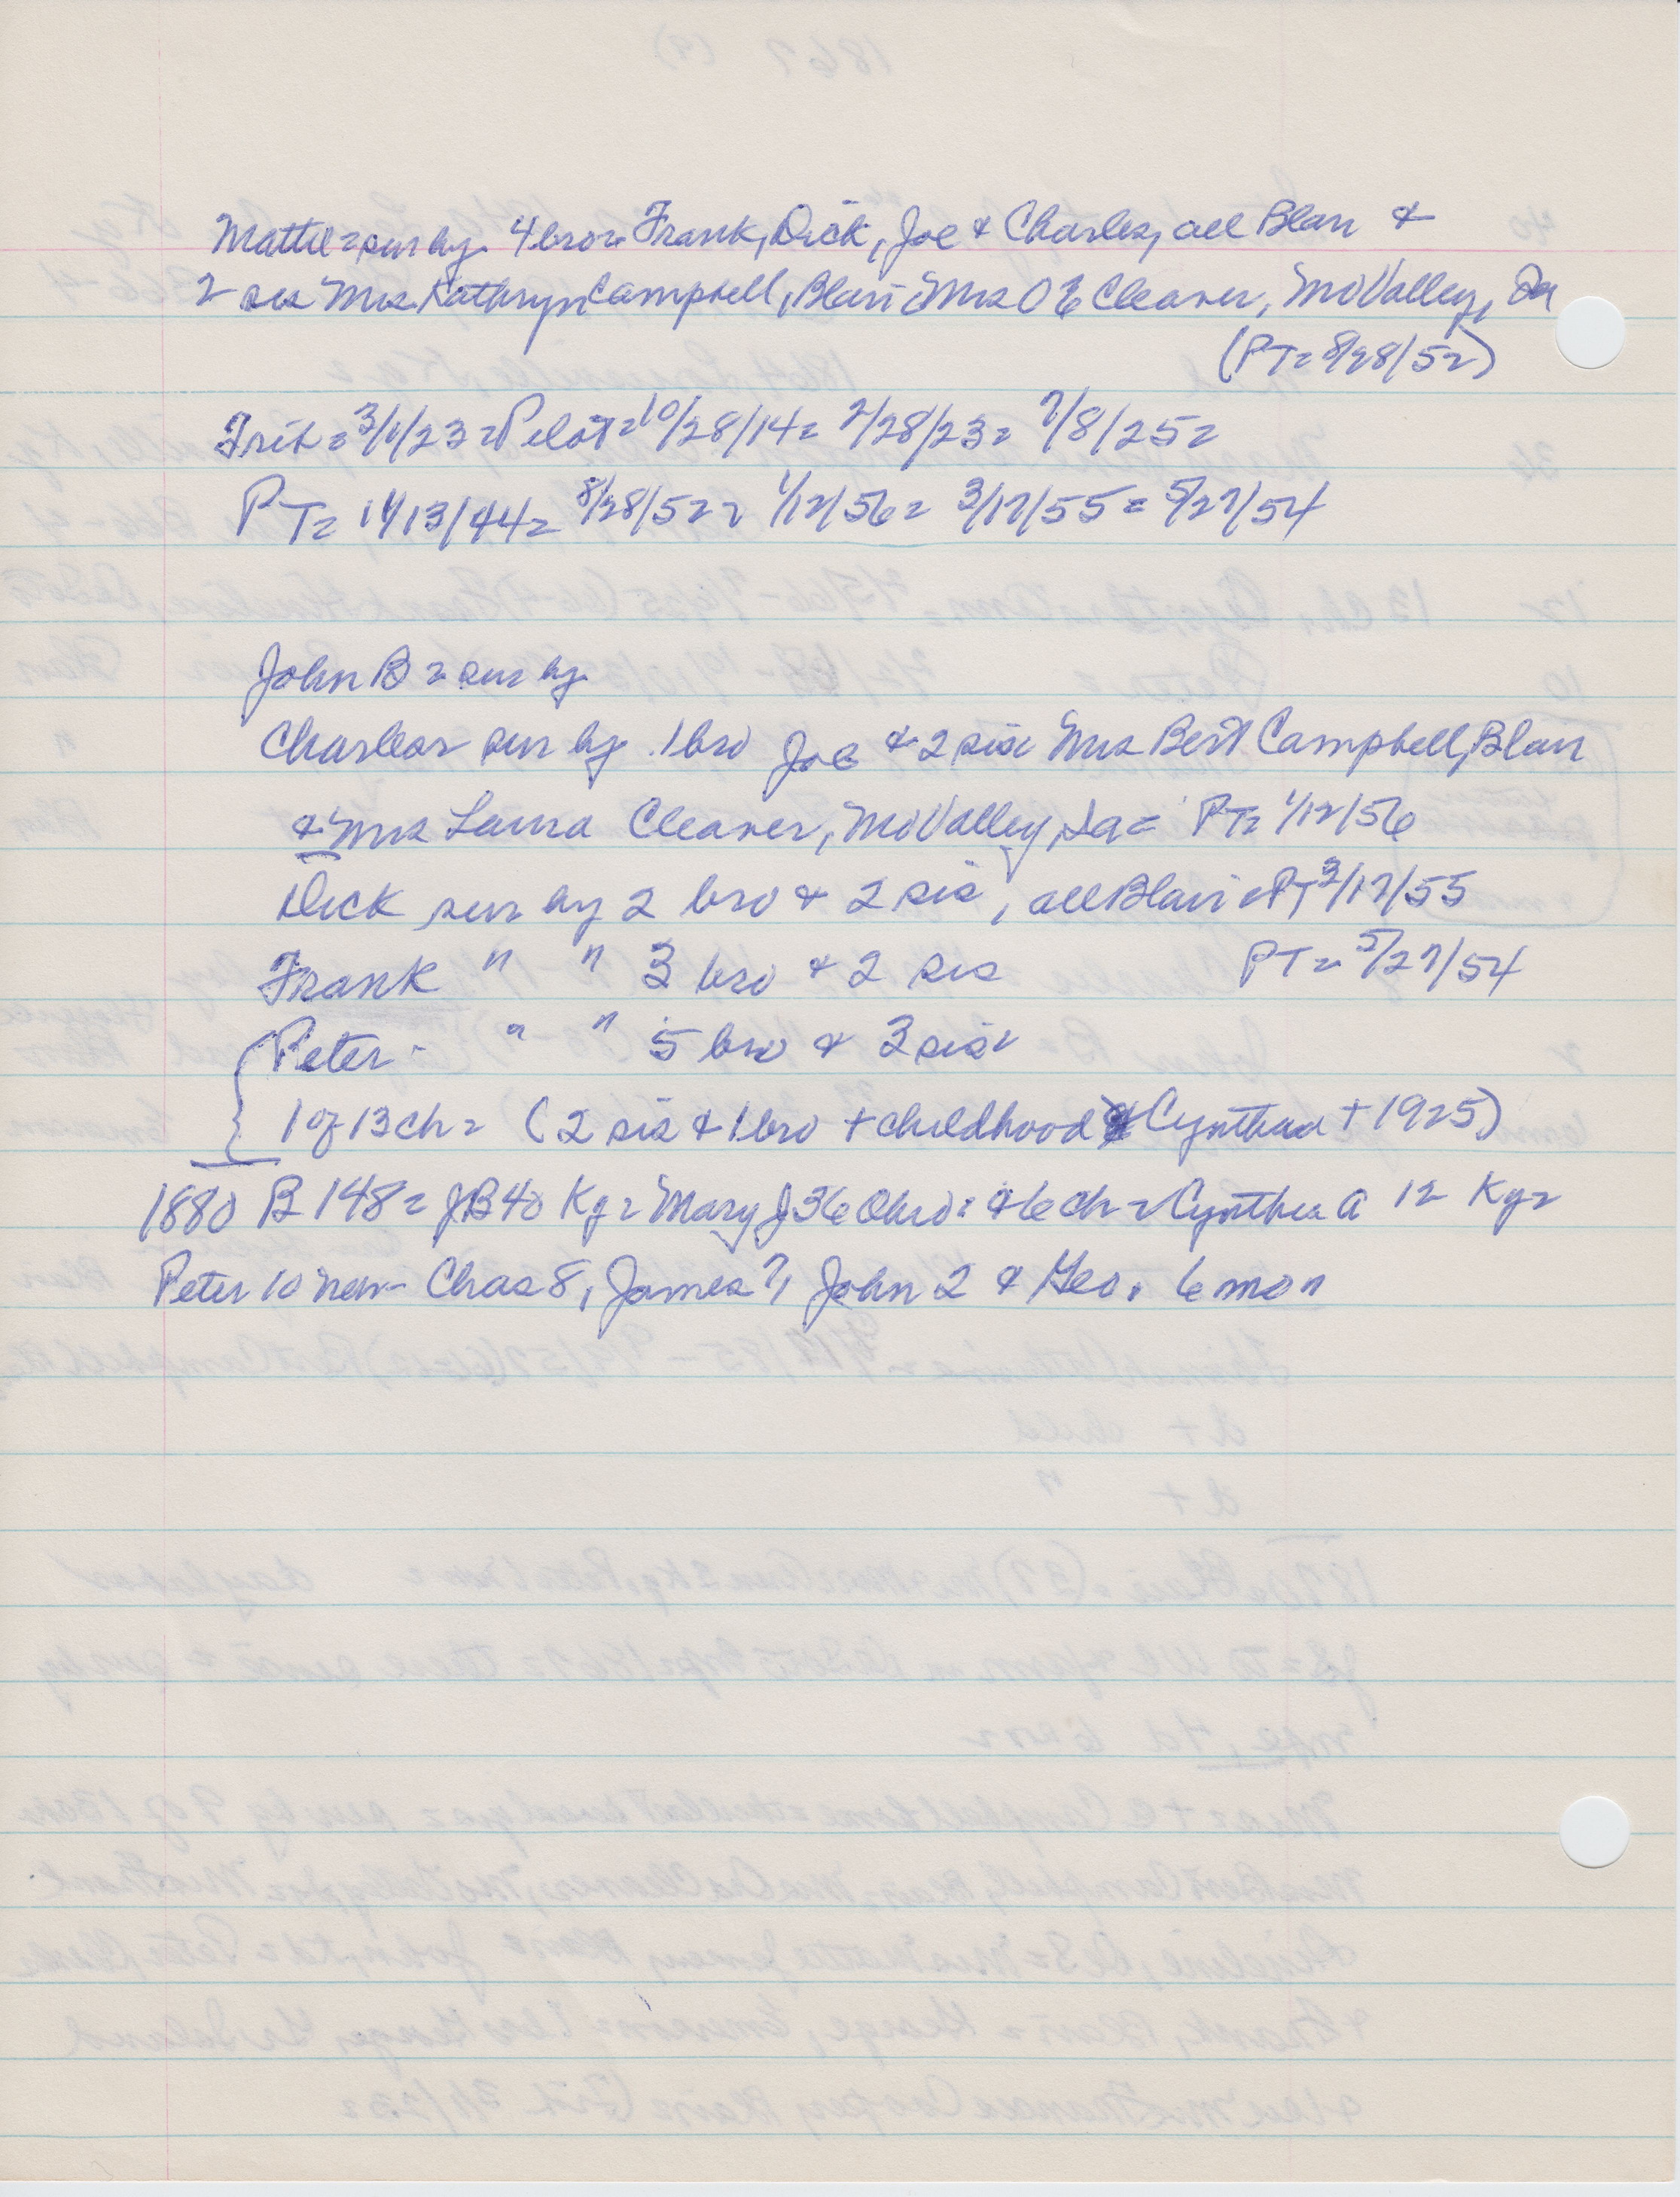 Mattie = sur by 4 bro = Frank, Dick, Joe & Charles, all Blair &
2 sis Mrs Kathryn Campbell, Blair & Mrs O E Cleaver, Mo Valley, Ia
(PT = 8/28/52)
Trib = 3/1/23 = Pilot = 10/28/14 = 2/28/23 = 7/8/25 =
PT = 11/13/44 = 8/28/52 = 1/12/56 = 3/17/55 = 5/27/54
John B = sur by
Charles = sur by 1 bro Joe & 2 sis = Mrs Bert Campbell, Blair
& Mrs Laura Cleaver, Mo Valley, Ia = PT = 1/12/56
Dick sur by 2 bro & 2 sis, all Blair = PT 3/17/55
Frank " " 3 bro & 2 sis PT = 5/27/54
Peter - " " 5 bro & 3 sis =
1 of 13 ch = (2 sis & 1 bro + childhood & Cynthia + 1925)
1880 B 148 = JB 40 Ky = Mary J 36 Ohio = & 6 ch = Cynthia A 12 Ky =
Peter 10 Neb - Chas 8, James 7, John 2 & Geo. 6 mon